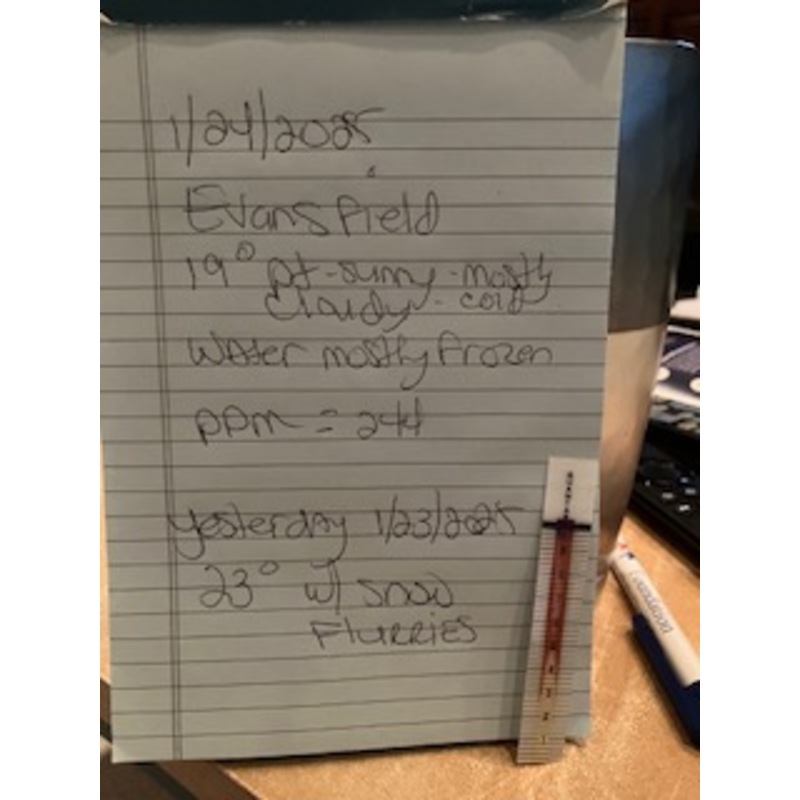 1/24/2025
Evansfield
19° pt-sunny-mostly
cloudy - cold
Water mostly frozen
ppm = 244
yesterday 1/23/2025
23° w/ snow
FlURRiES